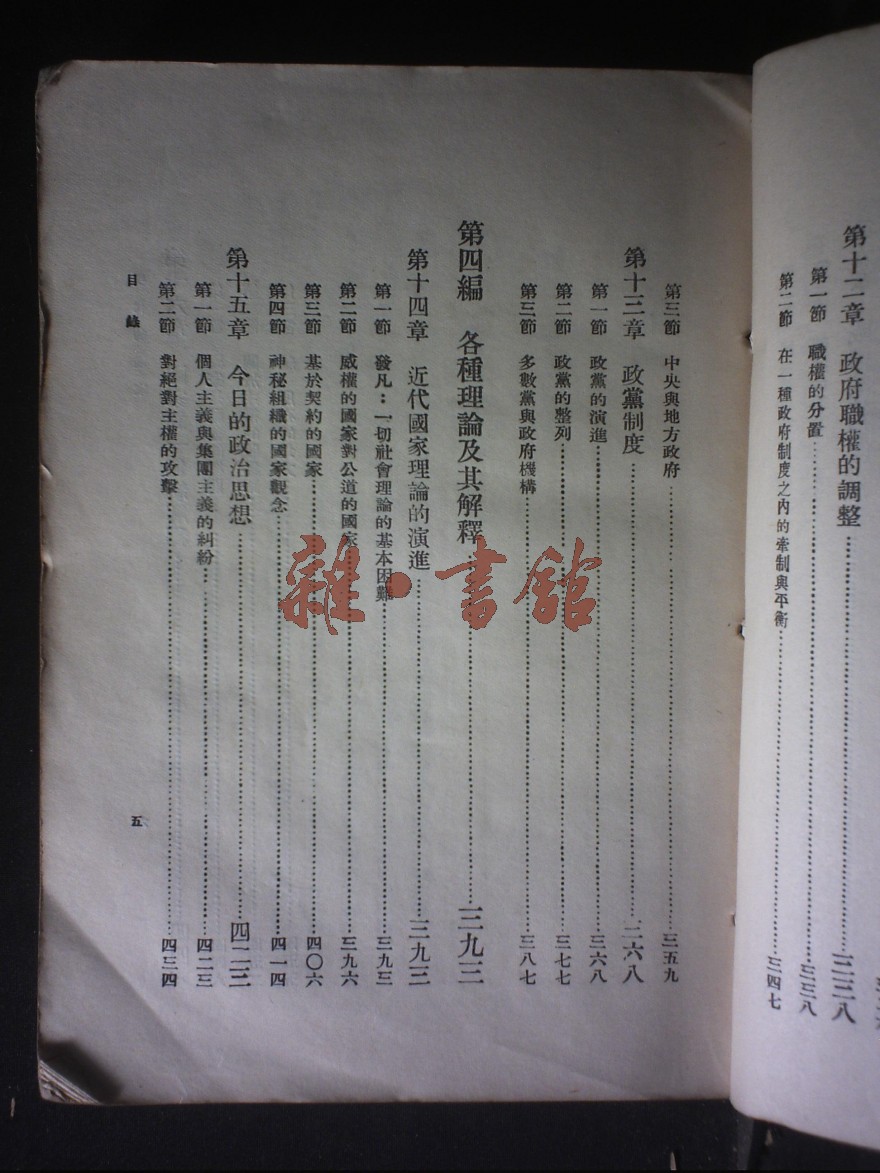 第十二章 政府職權的調整……三三八
第一節 職權的分置……三三八
第二節 在一種政府制度之內的牽制與平衡……三四七
第三節 中央與地方政府……三五九
第十三章 政黨制度……三六八
第一節 政黨的演進……三六八
第二節 政黨的整列……三七七
第三節 多數黨與政府機構……三八七
第四編 各種理論及其解釋……三九三
第十四章 近代國家理論的演進……三九三
第一節 發凡：一切社會理論的基本困難……三九三
第二節 威權的國家對公道的國家……三九六
第三節 基於契約的國家……四〇六
第四節 神秘組織的國家觀念……四一四
第十五章 今日的政治思想……四二三
第一節 個人主義與集團主義的糾紛……四二三
第二節 對絕對主權的攻擊……四三四
目錄
五
雜·書館